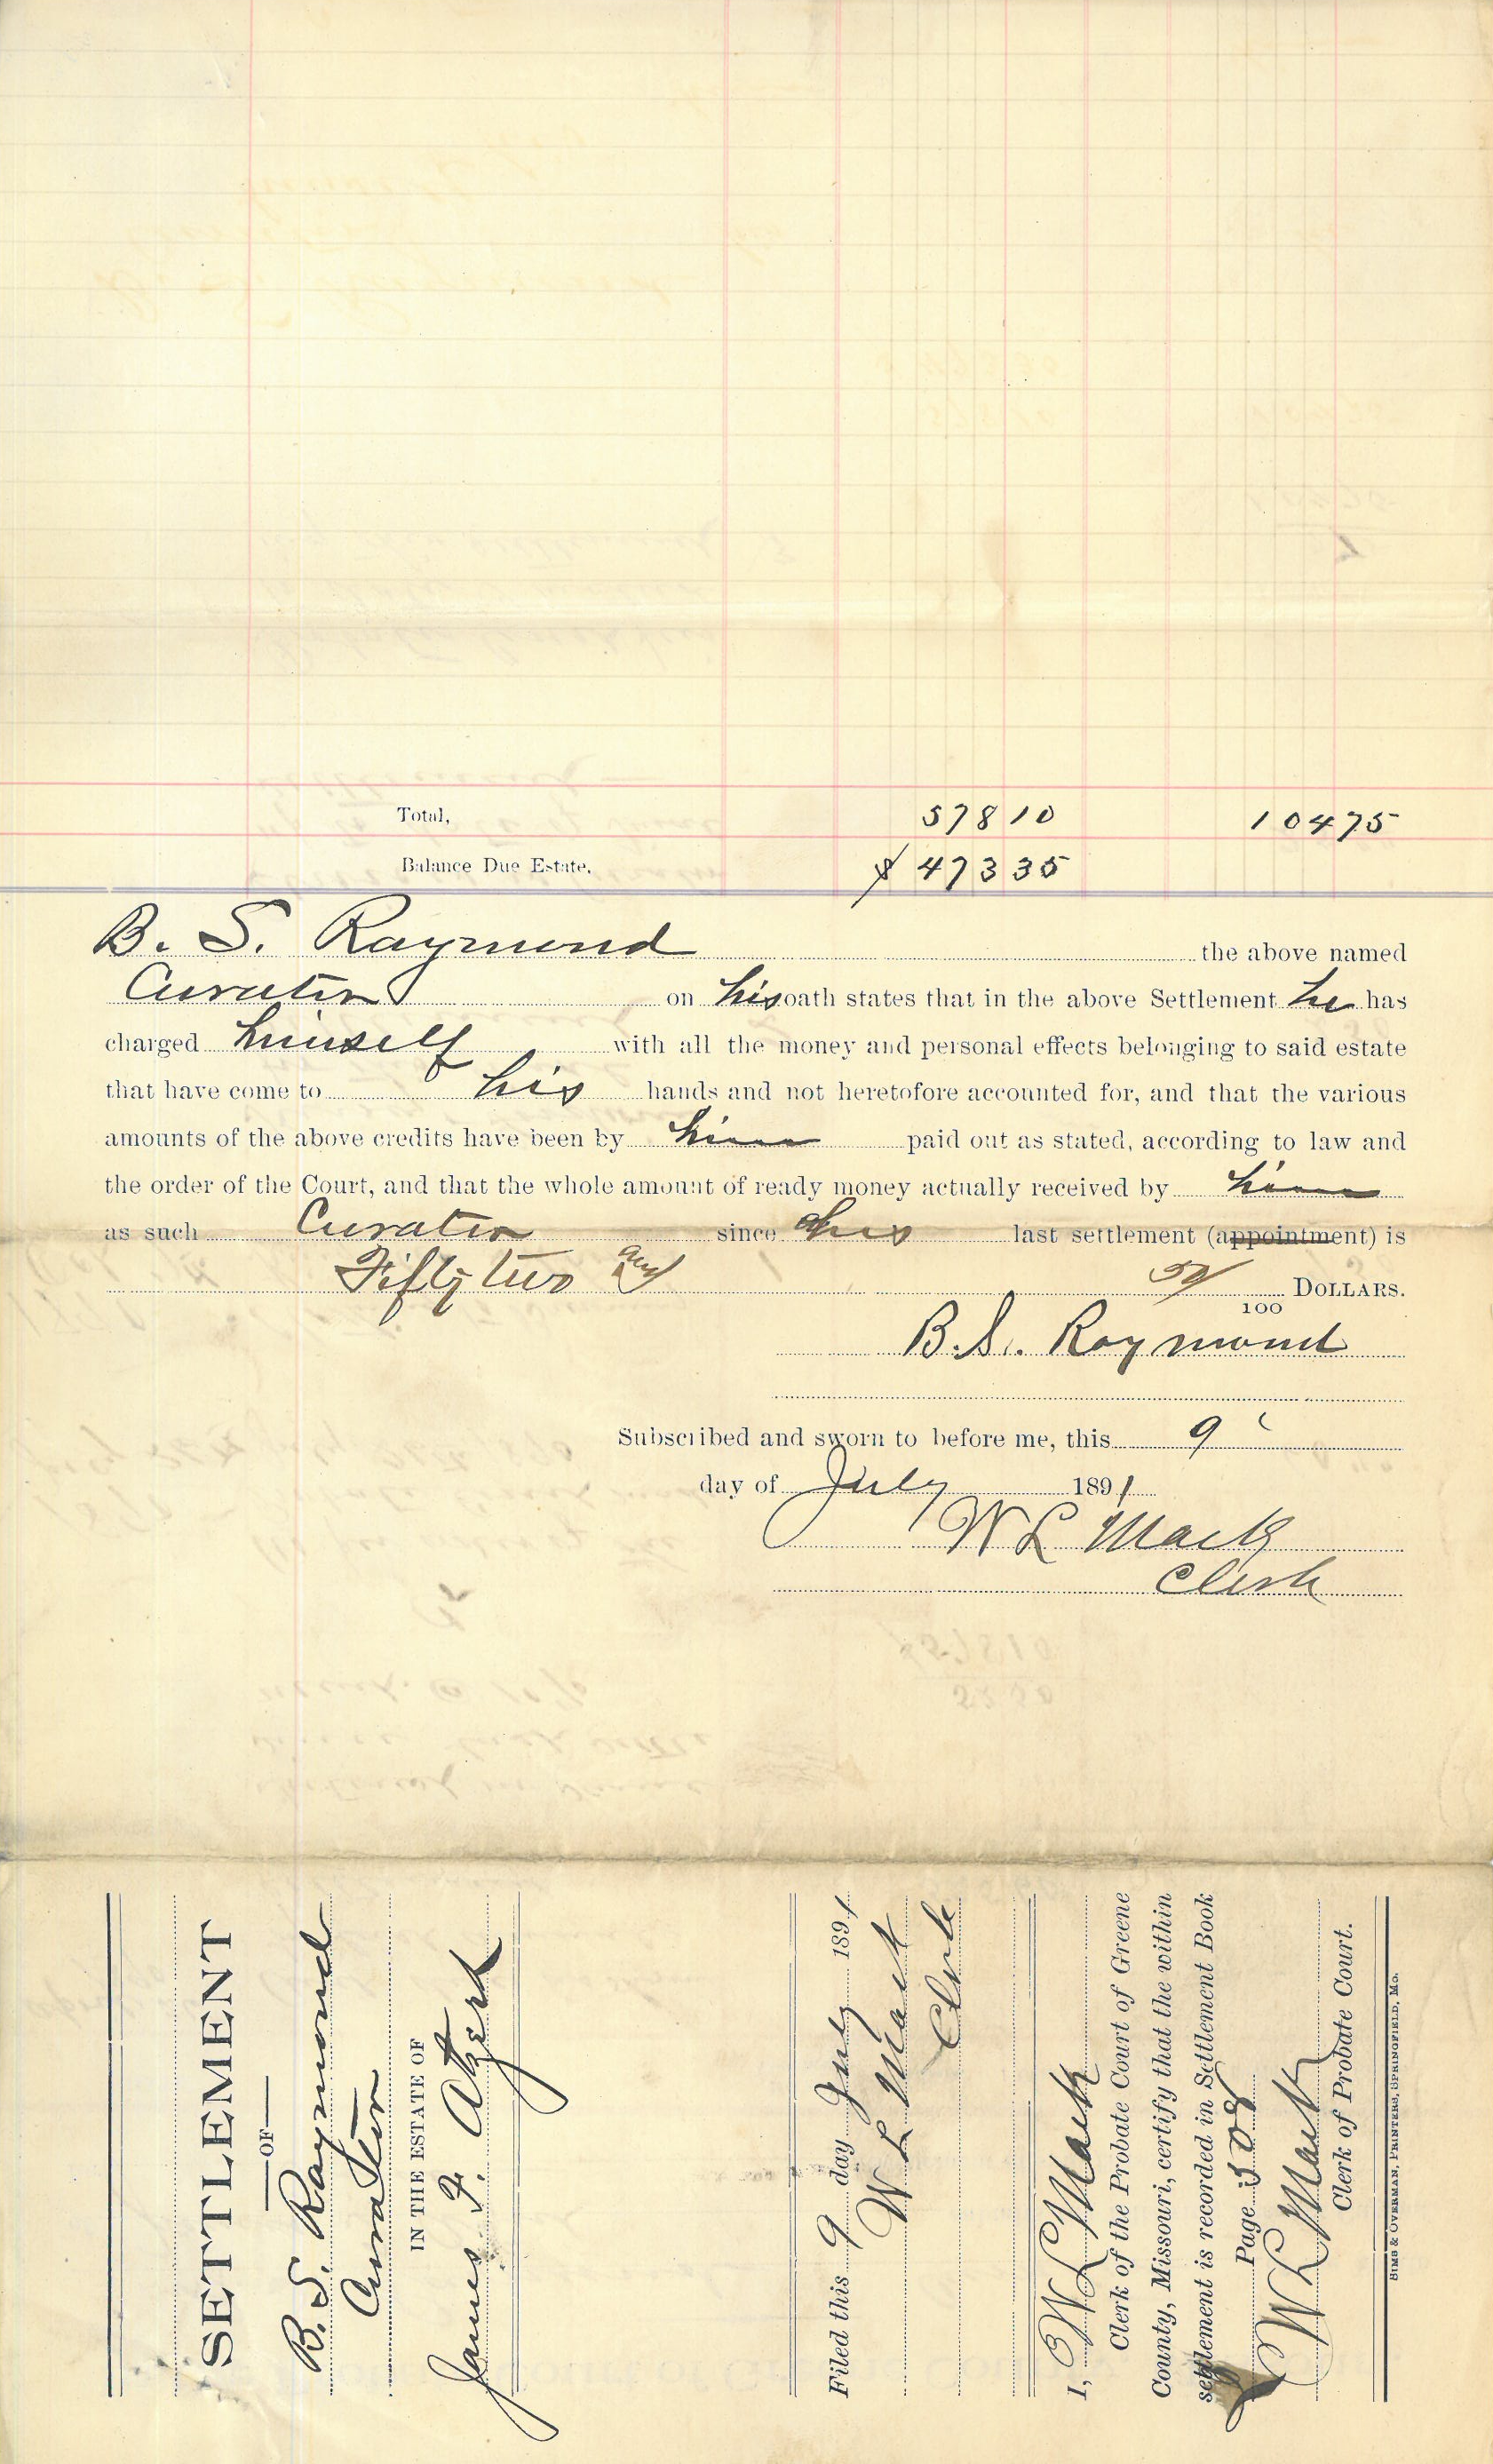 Total, 57810 10475
Balance Due Estate, $ 47335
B. S. Raymond the above named
Curator on his oath states that in the above Settlement he has
charged himself with all the money and personal effects belonging to said estate
that have come to his hands and not heretofore accounted for, and that the various
amounts of the above credits have been by him paid out as stated, according to law and
the order of the Court, and that the whole amount of ready money actually received by him
as such Curator since his last settlement (appointment) is
Fifty two and 50/100 DOLLARS.
B. S. Raymond
Subscribed and sworn to before me, this 9
day of July 1891
W L Mack
Clerk
SETTLEMENT
OF
B. S. Raymond
Curator
IN THE ESTATE OF
James F. Atzert
Filed this 9 day July 1891
W L Mack
Clerk
I, W L Mack
Clerk of the Probate Court of Greene
County, Missouri, certify that the within
settlement is recorded in Settlement Book
Page 308
W L Mack
Clerk of Probate Court.
SIMS & OVERMAN, PRINTERS, SPRINGFIELD, MO.